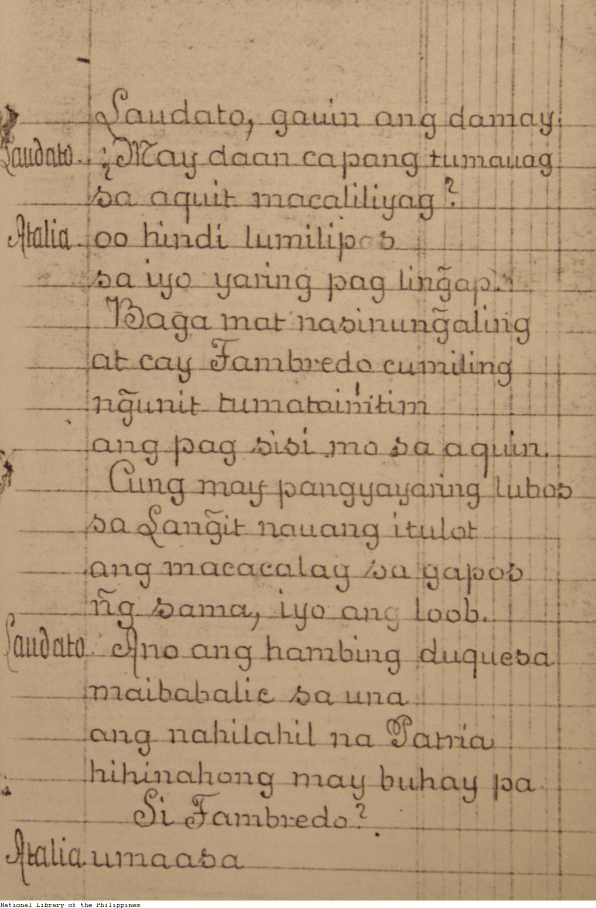 Laudato, gauin ang damay.
Laudato. ¿May daan capang tumauag
sa aquit macaliliyag?
Atalia. oo hindi lumilipos
sa iyo yaring pag ling̃ap.
Baga mat nasinung̃aling
at cay Fambredo cumiling
ng̃unit tumataimtim
ang pag sisi mo sa aquin.
Cung may pangyayaring lubos
sa Lang̃it nauang itulot
ang macacalag sa gapos
ng̃ sama, iyo ang loob.
Laudato. Ano ang hambing duquesa
maibabalic sa una
ang nahilahil na Patria
hihinahong may buhay pa
Si Fambredo?
Atalia. umaasa
National Library of the Philippines